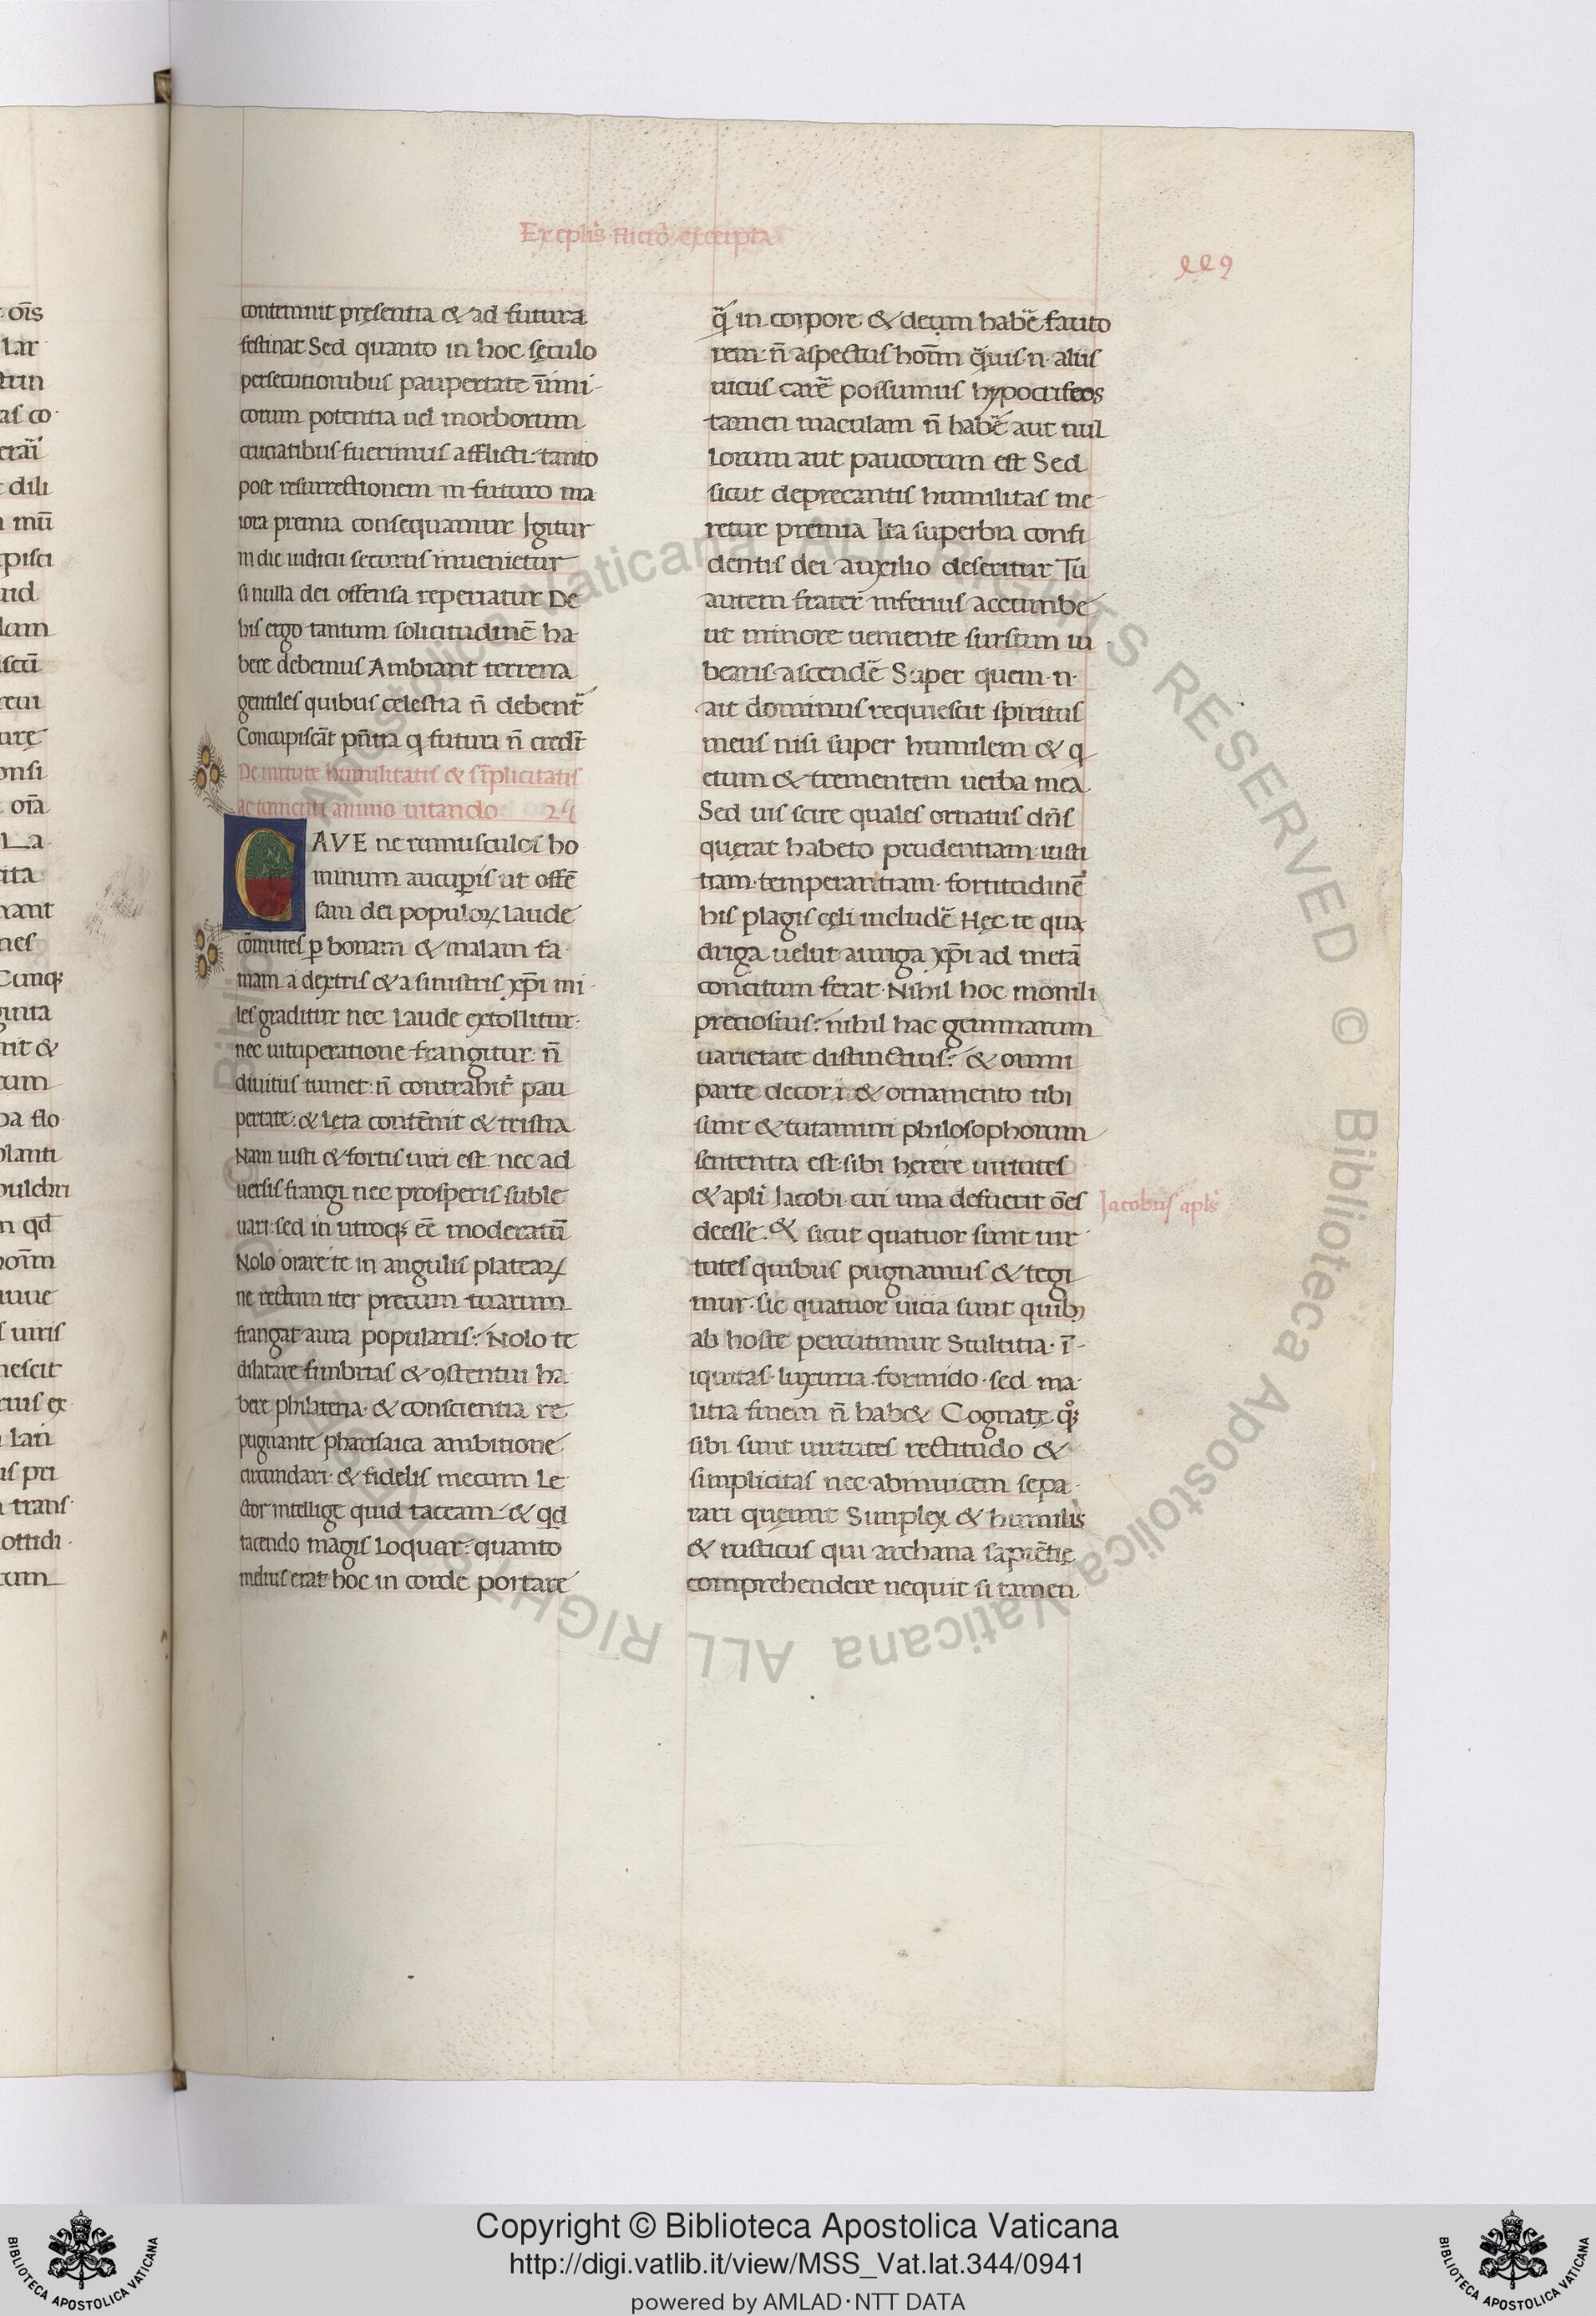 Ex eplis hiero excerpta
contemnit presentia & ad futura
festinat Sed quanto in hoc seculo
persecutionibus paupertate inimi-
corum potentia uel morborum
cruciatibus fuerimus afflicti tanto
post resurrectionem in futuro ma
iora premia consequamur Igitur
in die iudicii securus inuenietur
si nulla dei offensa reperiatur De
his ergo tantum solicitudinē ha-
bere debemus Ambiant terrena
gentiles quibus celestia n̄ debent
Concupiscāt pn̄tia q futura n̄ credt
De uirtute humilitatis & simplicitatis
CAVE ne rumusculos ho
minum aucuperis ut offē
sam dei populoꝝ laude
cōmutes p bonam & malam fa-
mam a dextris & a sinistris xp̄i mi-
les graditur nec laude extollitur
nec uituperatione frangitur: n̄
diuitiis tumet: n̄ contrahit pau
pertate: & leta contēnit & tristia
Nam iusti & fortis uiri est nec ad
uersis frangi nec prosperis suble
uari sed in utroq; eē moderatū
Nolo orare te in angulis plateaꝝ
ne rectum iter precum tuarum
frangat aura popularis: Nolo te
dilatare fimbrias & ostentui ha-
bere philateria & conscientia re
pugnante pharisaica ambitione
circundari: & fidelis mecum le-
ctor intellige quid taceam & qd
tacendo magis loquar: quanto
melius erat hoc in corde portare
q̄ in corpore & deum habē fauto
rem: n̄ aspectus hoīm q̄uis n aliis
uiciis carē possumus hypocriseos
tamen maculam n̄ habē aut nul
lorum aut paucorum est Sed
sicut deprecantis humilitas me-
retur premia Ita superbia confi
dentis dei auxilio deseritur Tu
autem frater inferius accumbe
ut minore ueniente sursum iu
bearis ascendē Super quem n
ait dominus requiescit spiritus
meus nisi super humilem & q
etum & trementem uerba mea
Sed uis scire quales ornatus dn̄s
querat habeto prudentiam iusti
tiam temperantiam fortitudinē
his plagis celi includē Hec te qua
driga uelut auriga xp̄i ad metā
concitum ferat Nihil hoc monili
preciosius: nihil hac gemmarum
uarietate distinctius: & omni
parte decori & ornamento tibi
sunt & tutamini philosophorum
sententia est sibi herere uirtutes
& apli Iacobi cui una defuerit oēs
Iacobus apls
deesse. & sicut quatuor sunt uir
tutes quibus pugnamus & tegi
mur sic quatuor uicia sunt quibꝫ
ab hoste percutimur Stultitia ī-
iquitas luxuria formido sed ma-
litia finem n̄ hab& Cognate qq;
sibi sunt uirtutes rectitudo &
simplicitas nec abinuicem sepa-
rari queunt Simplex & humilis
& rusticus qui archana sapiētie
comprehendere nequit si tamen
Copyright © Biblioteca Apostolica Vaticana
http://digi.vatlib.it/view/MSS_Vat.lat.344/0941
powered by AMLAD·NTT DATA